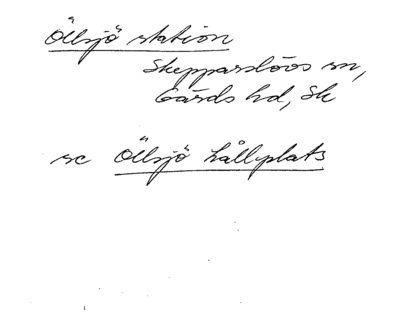 Öllsjö station
Skepparslövs sn,
Gärds hd, Sk
se Öllsjö hållplats